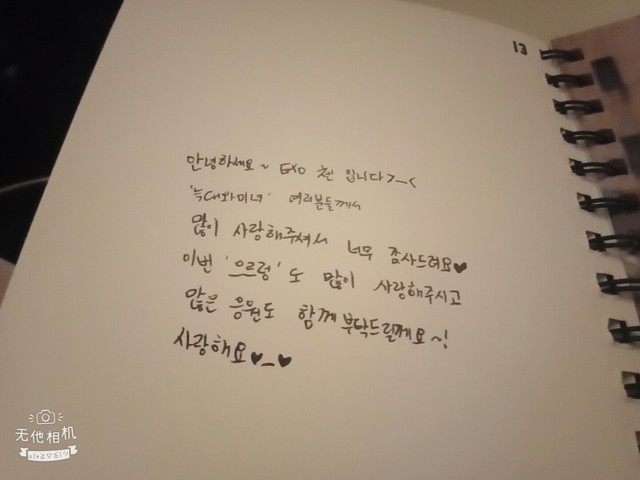 13
안녕하세요~ EXO 첸 입니다>_<
'늑대와미녀' 여러분들께서
많이 사랑해주셔서 너무 감사드려요♥
이번 '으르렁'도 많이 사랑해주시고
많은 응원도 함께 부탁드릴께요~!
사랑해요♥_♥
无他相机